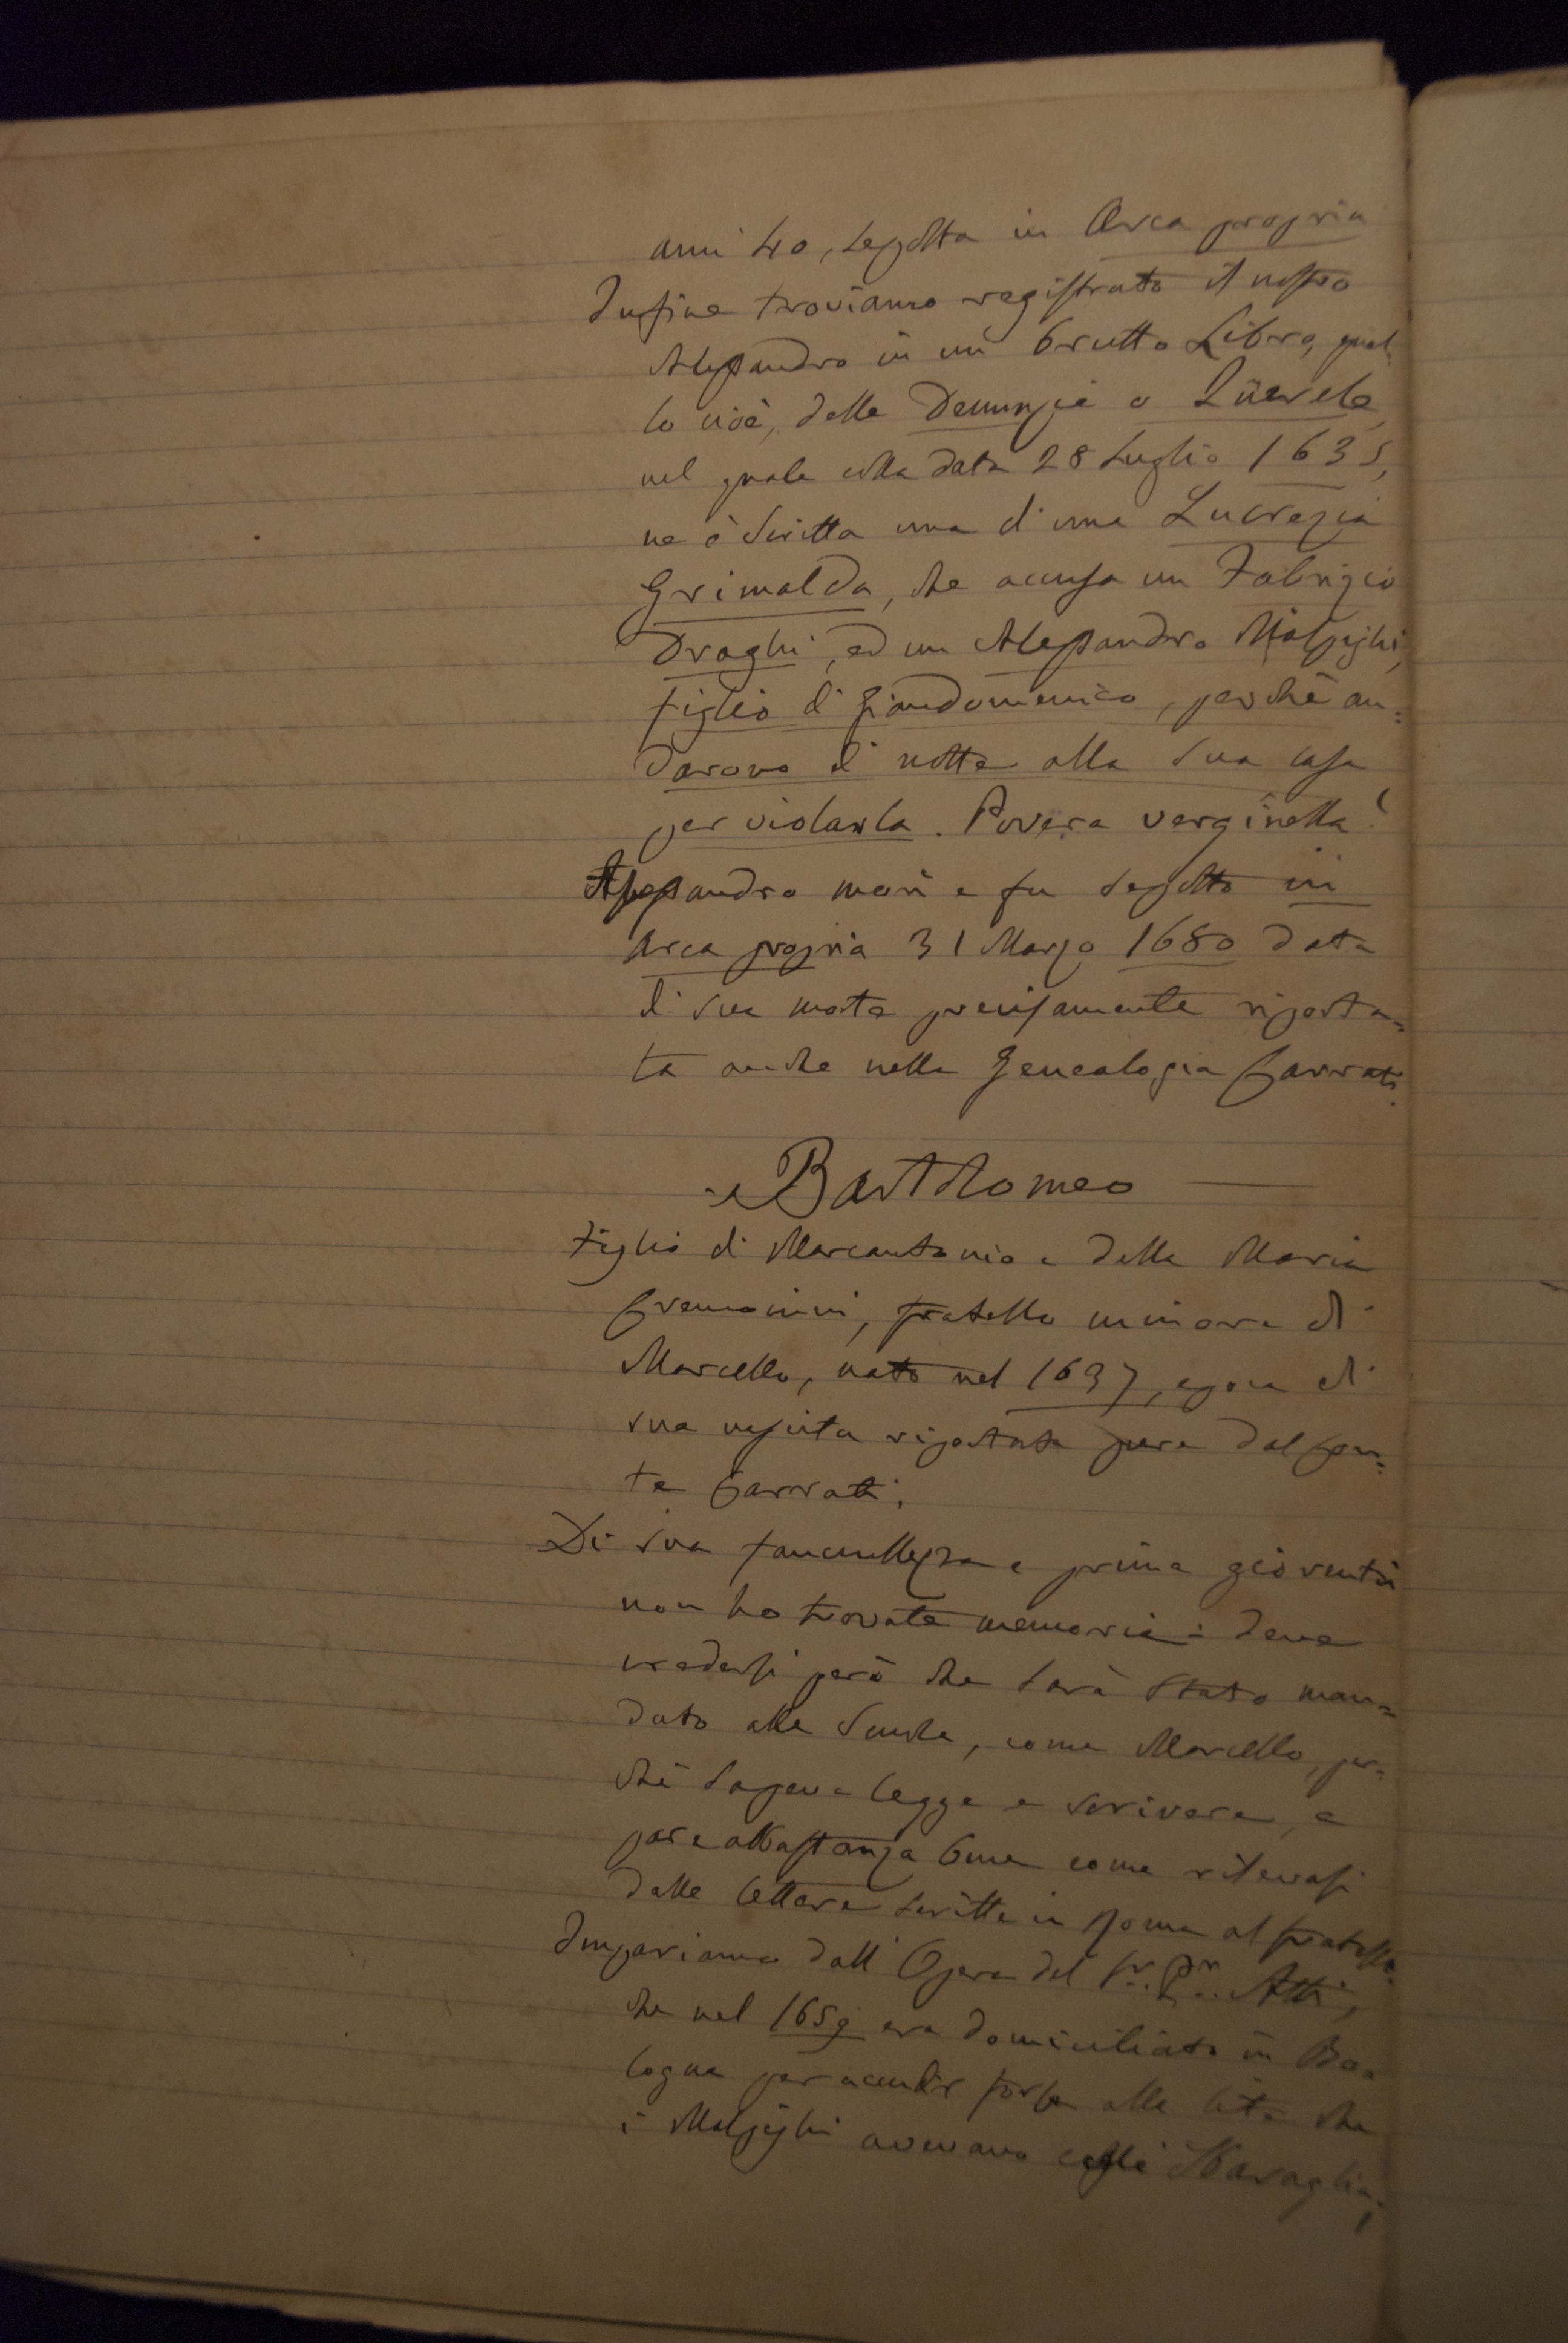 anni 40, sepolta in Arca propria
Infine troviamo registrato il nostro
Alessandro in un brutto Libro, quel-
lo cioè, delle Denunzie o Querele,
nel quale colla data 28 Luglio 1635,
ne è scritta una di una Lucrezia
Grimalda, che accusa un Fabrizio
Draghi, ed un Alessandro Malpighi,
figlio di Giandomenico, perchè an=
darono di notte alla sua casa
per violarla. Povera verginella!
Alessandro morì e fu sepolto in
Arca propria 31 Marzo 1680 data
di sua morte precisamente riporta=
ta anche nella Genealogia Carrati.
Bartholomeo
Figlio di Marcantonio e della Maria
Cremonini, fratello minore di
Marcello, nato nel 1637, epoca di
sua nascita riportata pure dal Con=
te Carrati.
Di sua fanciullezza e prima gioventù
non ho trovate memorie: deve
credersi però che sarà stato man=
dato alle Scuole, come Marcello, per=
chè sapeva legge e scrivere, e
pare abbastanza bene come rilevasi
dalle lettere scritte in Roma al fratello.
Impariamo dall'Opera del Atti,
che nel 1659 era domiciliato in Bo=
logna per accudir forse alla lite che
i Malpighi avevano cogli Sbaraglia;